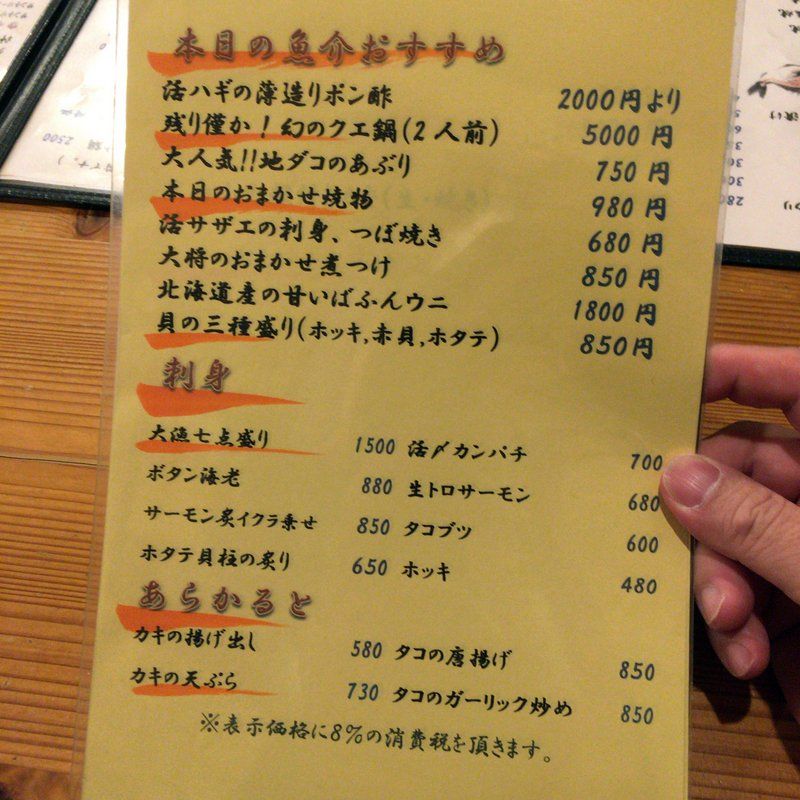 本日の魚介おすすめ
活ハギの薄造りポン酢 2000円より
残り僅か！幻のクエ鍋(2人前) 5000円
大人気!!地ダコのあぶり 750円
本日のおまかせ焼物 980円
活サザエの刺身、つぼ焼き 680円
大将のおまかせ煮つけ 850円
北海道産の甘いばふんウニ 1800円
貝の三種盛り(ホッキ,赤貝,ホタテ) 850円
刺身
大漁七点盛り 1500 活〆カンパチ 700
ボタン海老 880 生トロサーモン 680
サーモン炙イクラ乗せ 850 タコブツ 600
ホタテ貝柱の炙り 650 ホッキ 480
あらかると
カキの揚げ出し 580 タコの唐揚げ 850
カキの天ぷら 730 タコのガーリック炒め 850
※表示価格に8%の消費税を頂きます。